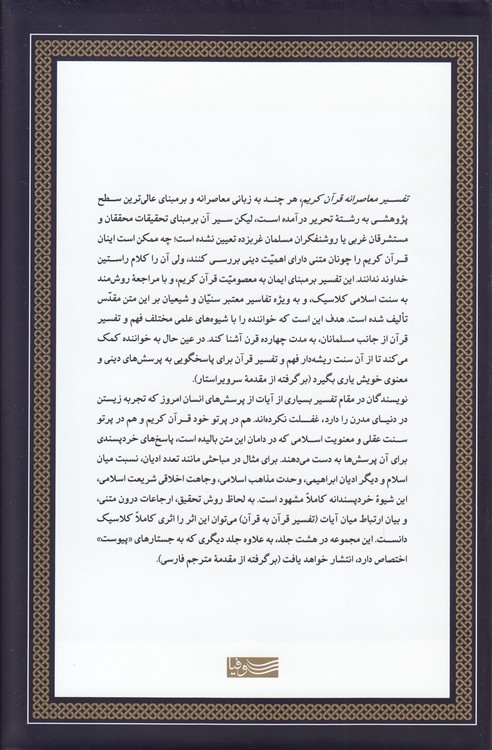 تفسیر معاصرانه قرآن کریم، هر چند به زبانی معاصرانه و برمبنای عالی‌ترین سطح
پژوهشی به رشتۀ تحریر درآمده است، لیکن سیر آن برمبنای تحقیقات محققان و
مستشرقان غربی یا روشنفکران مسلمان غربزده تعیین نشده است؛ چه ممکن است اینان
قرآن کریم را چونان متنی دارای اهمیّت دینی بررسی کنند، ولی آن را کلام راستین
خداوند ندانند. این تفسیر برمبنای ایمان به معصومیّت قرآن کریم، و با مراجعۀ روش‌مند
به سنت اسلامی کلاسیک، و به ویژه تفاسیر معتبر سنیّان و شیعیان بر این متن مقدّس
تألیف شده است. هدف این است که خواننده را با شیوه‌های علمی مختلف فهم و تفسیر
قرآن از جانب مسلمانان، به مدت چهارده قرن آشنا کند. در عین حال به خواننده کمک
می‌کند تا از آن سنت ریشه‌دار فهم و تفسیر قرآن برای پاسخگویی به پرسش‌های دینی و
معنوی خویش یاری بگیرد (برگرفته از مقدمۀ سرویراستار).
نویسندگان در مقام تفسیر بسیاری از آیات از پرسش‌های انسان امروز که تجربه زیستن
در دنیای مدرن را دارد، غفلت نکرده‌اند. هم در پرتو خود قرآن کریم و هم در پرتو
سنت عقلی و معنویت اسلامی که در دامان این متن بالیده است، پاسخ‌های خردپسندی
برای آن پرسش‌ها به دست می‌دهند. برای مثال در مباحثی مانند تعدد ادیان، نسبت میان
اسلام و دیگر ادیان ابراهیمی، وحدت مذاهب اسلامی، وجاهت اخلاقی شریعت اسلامی،
این شیوۀ خردپسندانه کاملاً مشهود است. به لحاظ روش تحقیق، ارجاعات درون متنی،
و بیان ارتباط میان آیات (تفسیر قرآن به قرآن) می‌توان این اثر را اثری کاملاً کلاسیک
دانست. این مجموعه در هشت جلد، به علاوه جلد دیگری که به جستارهای «پیوست»
اختصاص دارد، انتشار خواهد یافت (برگرفته از مقدمۀ مترجم فارسی).
سوفیا